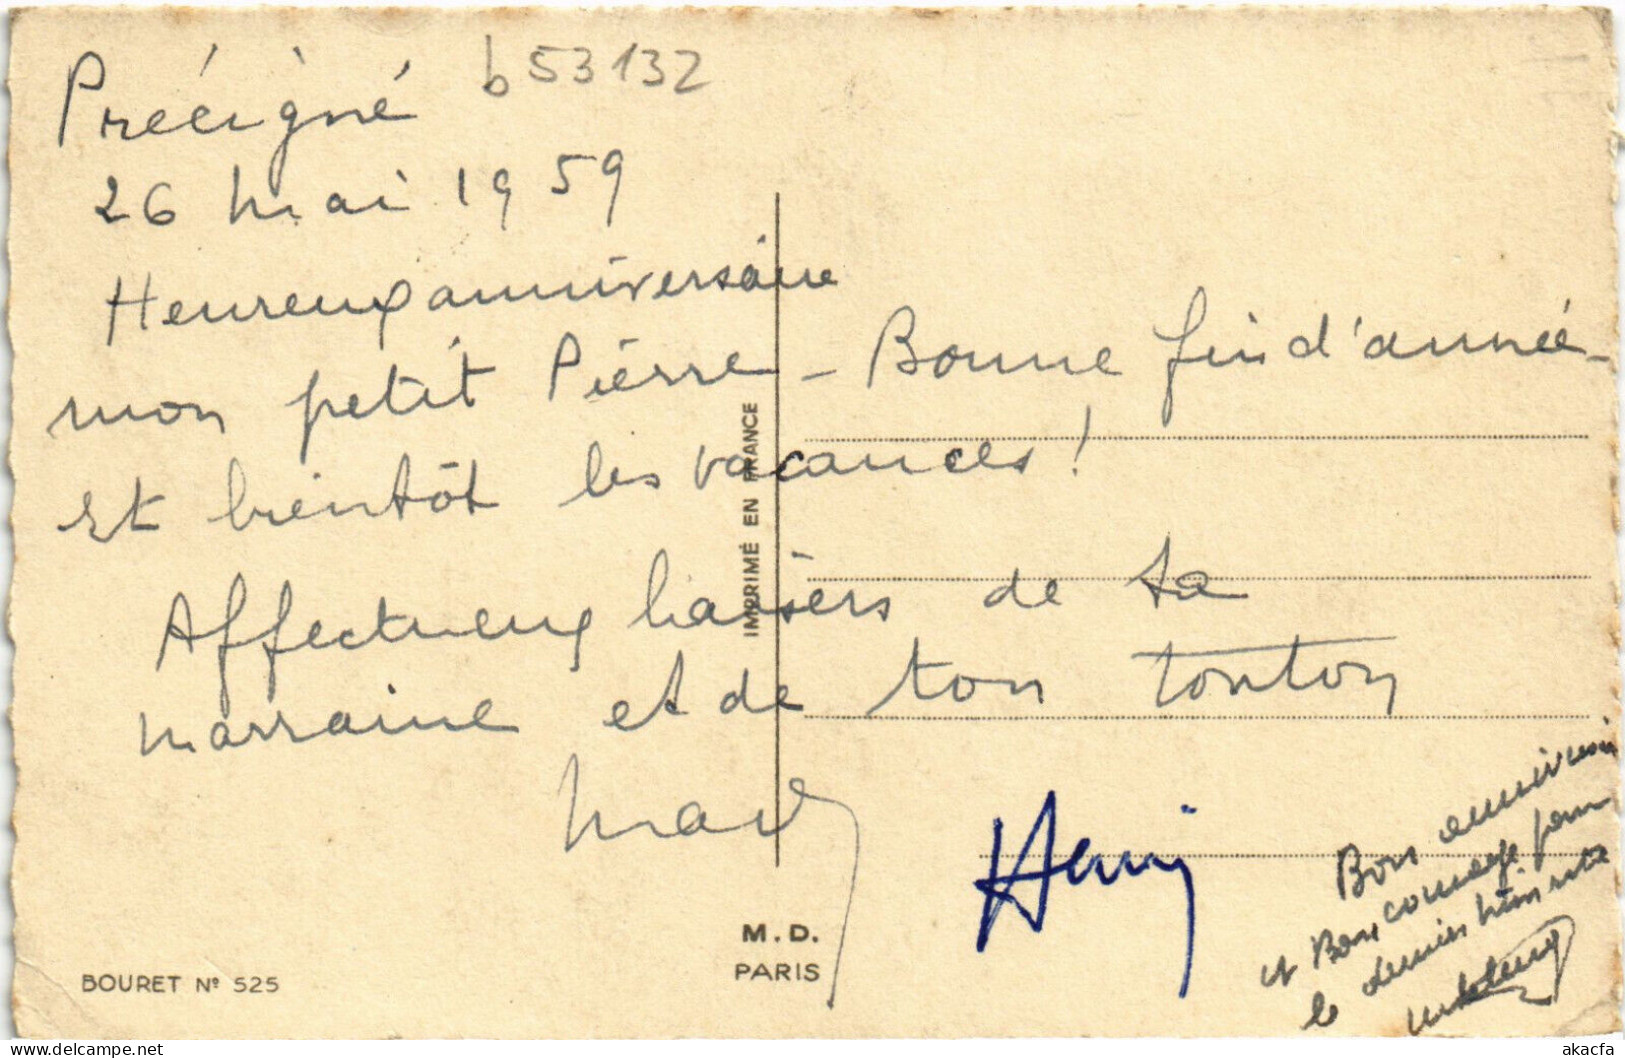 Précigné b53132
26 mai 1959
Heureux anniversaire
mon petit Pierre - Bonne fin d'année -
et bientôt les vacances !
Affectueux baisers de ta
marraine et de ton tonton
Henri
Bon anniversaire
et Bon courage pour
le dernier trimestre
IMPRIMÉ EN FRANCE
M. D.
PARIS
BOURET Nº 525
akacfa